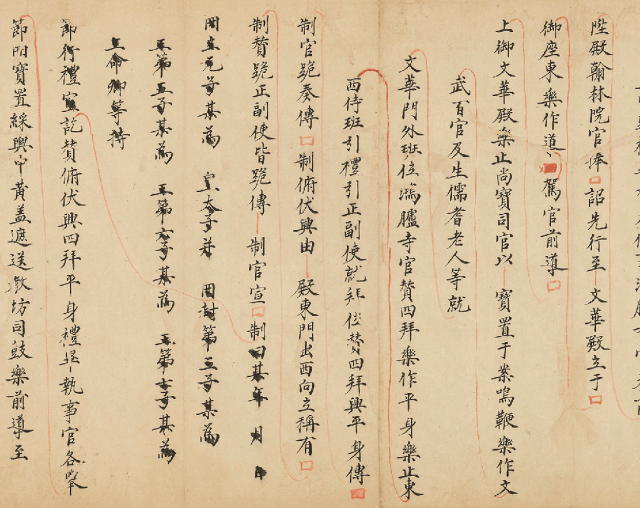 陞殿翰林院官捧 詔先行至 文華殿立于
御座東樂作導 駕官前導
上御文華殿樂止尚寶司官以 寶置于案鳴鞭樂作文
武百官及生儒耆老人等就
文華門外班位鴻臚寺官贊四拜樂作平身樂止東
西侍班引禮引正副使就拜位贊四拜興平身傳
制官跪奏傳 制俯伏興由 殿東門出西向立稱有
制贊跪正副使皆跪傳 制官宣 制曰某年 月 日
冊立元子某為 皇太子并 冊封第三子某為
王第五子某為 王第六子某為 王第七子某為
王命卿等持
節行禮宣訖贊俯伏興四拜平身禮畢執事官各捧
節冊寶置綵輿中黃蓋遮送教坊司鼓樂前導至